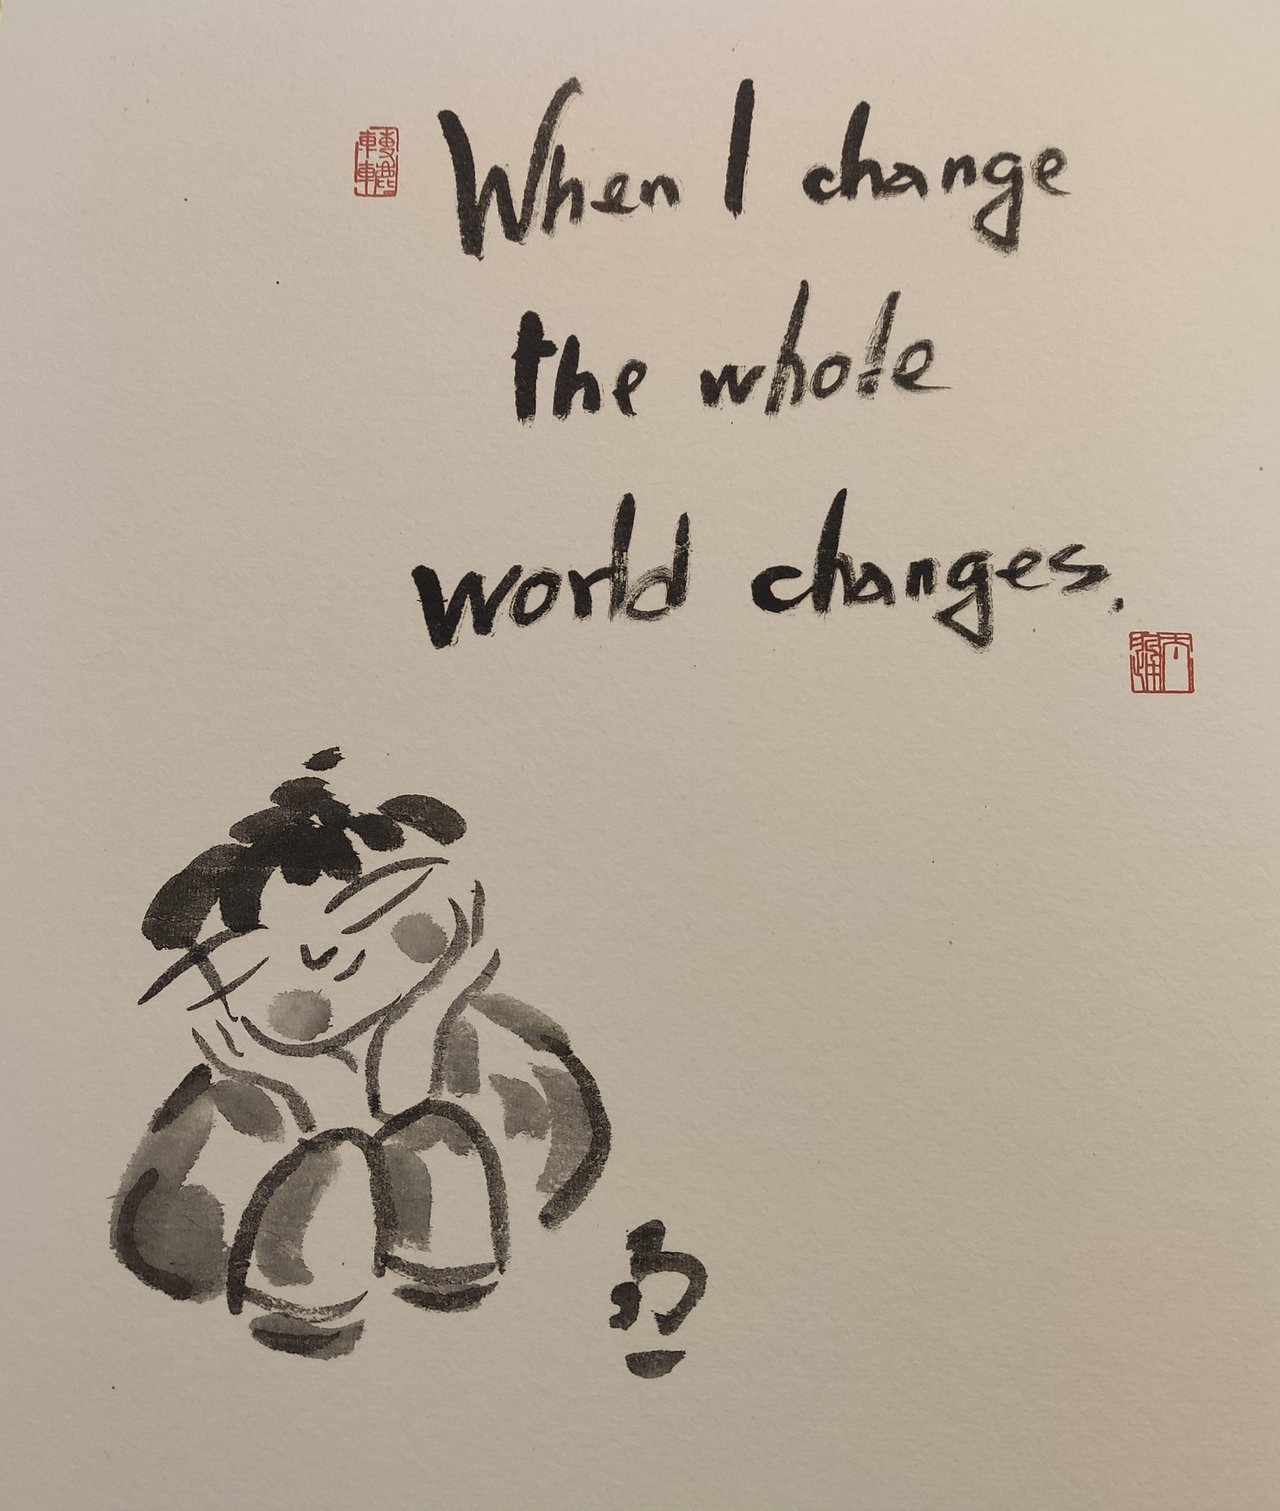 When I change
the whole
world changes.